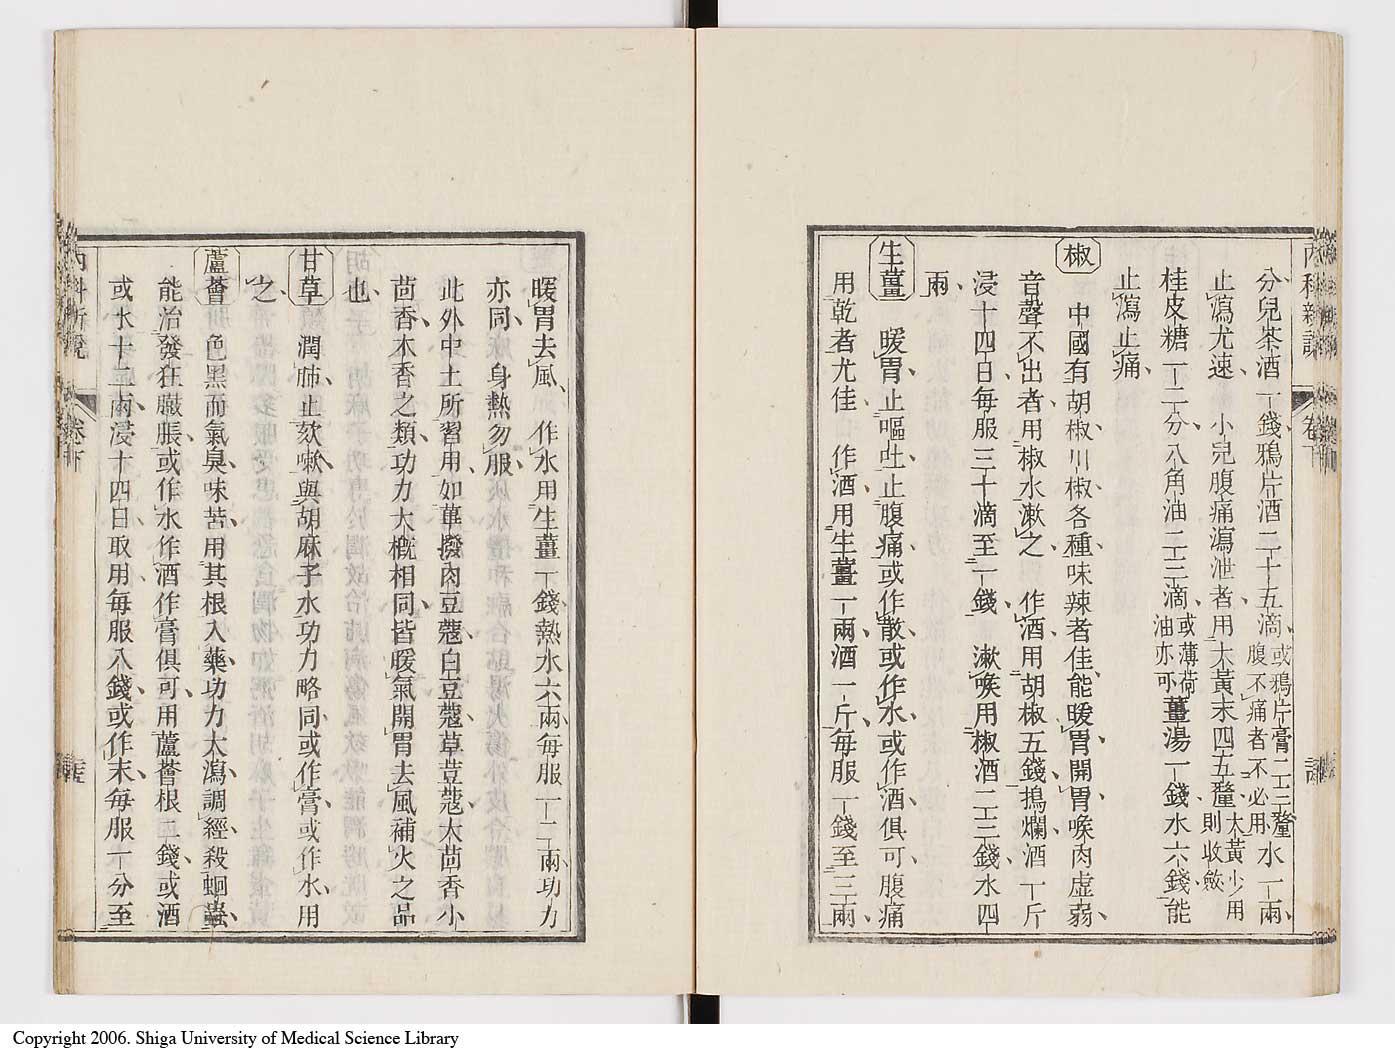 內科新說
卷下
分兒茶酒一錢鴉片酒二十五滴或鴉片膏二三釐腹不痛者不必用水一兩
止瀉尤速、小兒腹痛瀉泄者用大黃末四五釐大黃少用則收斂
桂皮糖一二分八角油二三滴或薄荷油亦可薑湯一錢水六錢能
止瀉止痛
椒
中國有胡椒川椒各種味辣者佳能暖胃開胃喉肉虛弱
音聲不出者用椒水漱之、作酒用胡椒五錢搗爛酒一斤
浸十四日每服三十滴至一錢、漱喉用椒酒二三錢水四
兩
生薑
暖胃止嘔吐止腹痛或作散或作水或作酒俱可腹痛
用乾者尤佳、作酒用生薑一兩酒一斤每服一錢至三兩
暖胃去風、作水用生薑一錢熱水六兩每服一二兩功力
亦同、身熱勿服、
此外中土所習用如蓽撥肉豆蔻白豆蔻草荳蔻大茴香小
茴香木香之類功力大概相同皆暖氣開胃去風補火之品
也、
甘草
潤肺止欬嗽與胡麻子水功力略同或作膏或作水用
之、
蘆薈
色黑而氣臭味苦用其根入藥功力大瀉調經殺蛔蟲
能治發狂臌脹或作水作酒作膏俱可、用蘆薈根二錢或酒
或水十二兩浸十四日取用每服八錢或作末每服一分至
內科新說
卷下